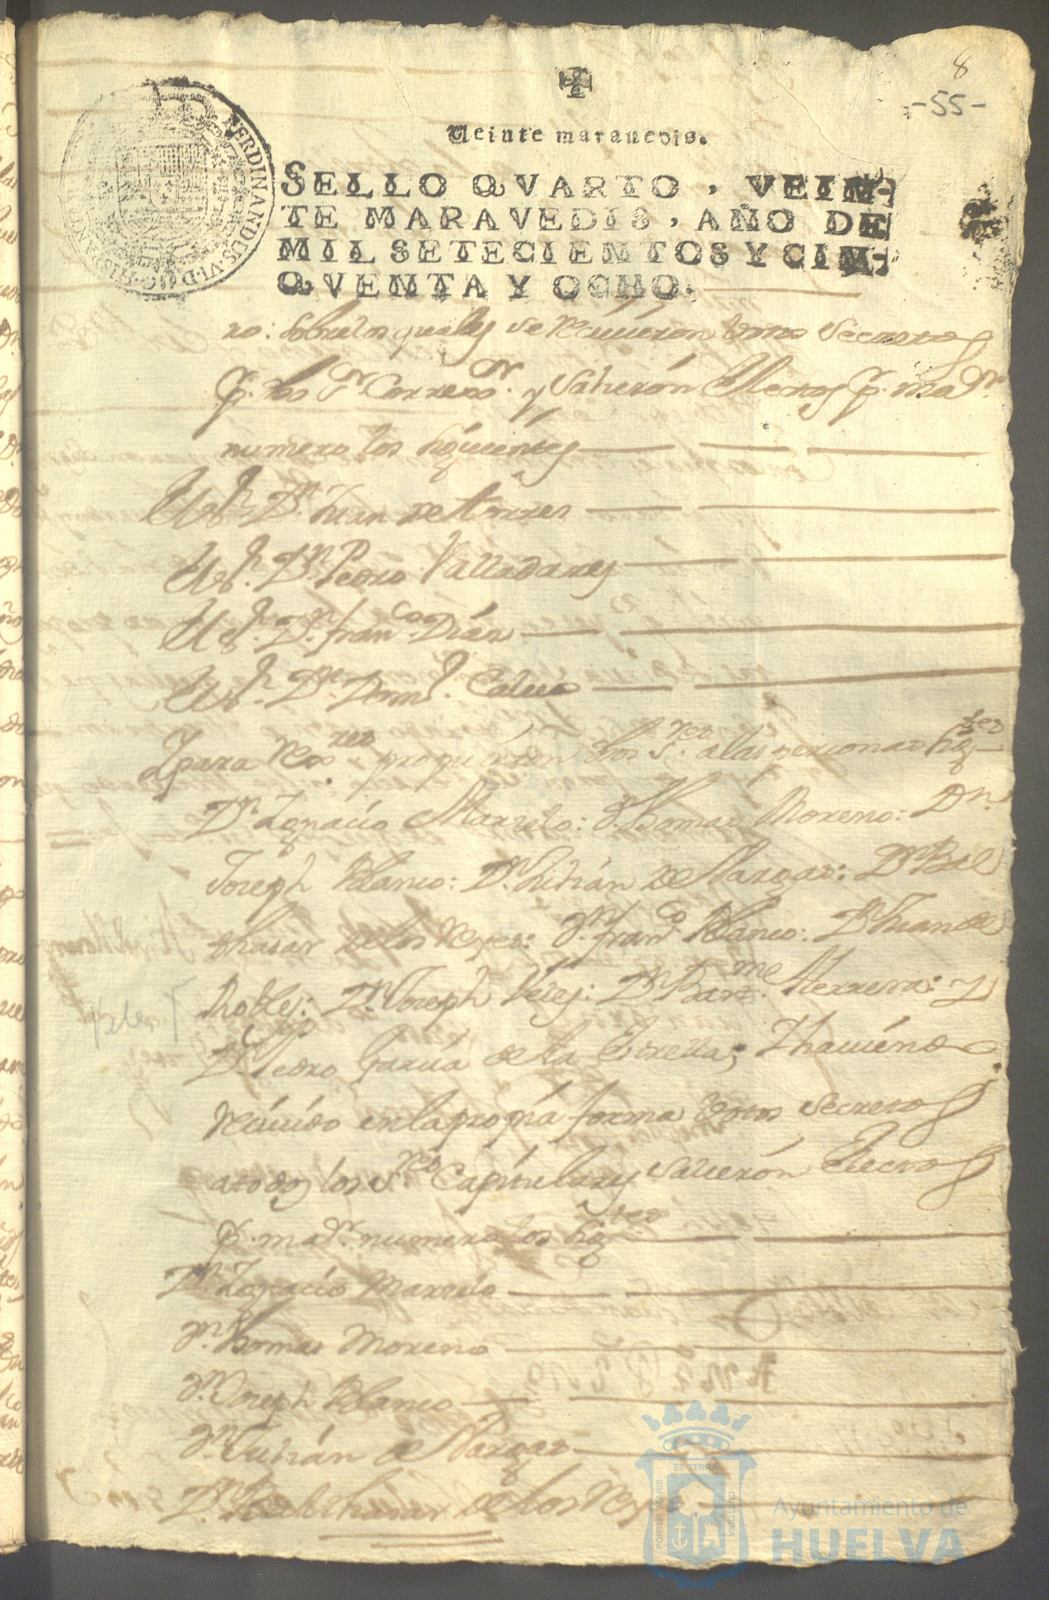 8
-55-
Veinte maravedis.
SELLO QVARTO, VEIN-
TE MARAVEDIS, AÑO DE
MIL SETECIENTOS Y CIN-
QVENTA Y OCHO.
FERDINANDUS VI D G
ro: sobre los quales se recivieron votos secretos
p. dho Sr Correxor. y salieron Electos p. mar.
numero los siguientes
El Sr Dn Juan de
El Sr Dn Pedro Valladares
El Sr Dn Franco Díaz
El Sr Dn Domo. Calvo
Y para propusieron dhos Sres a las personas sigtes
Dn Ignacio Marzelo: Dn Thomas Moreno: Dn
Joseph Blanco: Dn Julián de Vargas: Dn Bal
thasar de los Reyes: Dn Franco Blanco: Dn Juan de
Robles: Dn Joseph Velez: Dn Barme Herrera: y
Dn Pedro García de la Estrella; Y haviendo
recivido en la propia forma votos secretos
a todos los Sres Capitulares y salieron Electos
p. mar. numero los sigtes
Dn Ignacio Marzelo
Dn Thomas Moreno
Dn Joseph Blanco
Dn Julián de Vargas
Dn Balthasar de los Reyes
PORTUS MARIS ET TERRÆ CUSTODIA
Ayuntamiento de
HUELVA